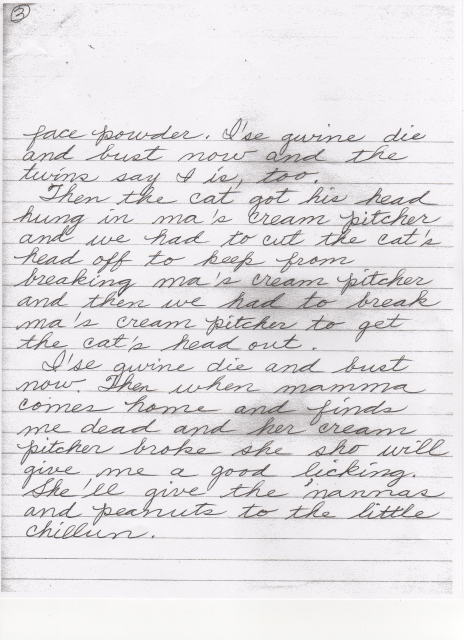 3
face powder. I'se gwine die
and bust now and the
twins say I is, too.
Then the cat got his head
hung in ma's cream pitcher
and we had to cut the cat's
head off to keep from
breaking ma's cream pitcher
and then we had to break
ma's cream pitcher to get
the cat's head out.
I'se gwine die and bust
now. Then when mamma
comes home and finds
me dead and her cream
pitcher broke she sho will
give me a good licking.
She'll give the 'nannas
and peanuts to the little
chillun.